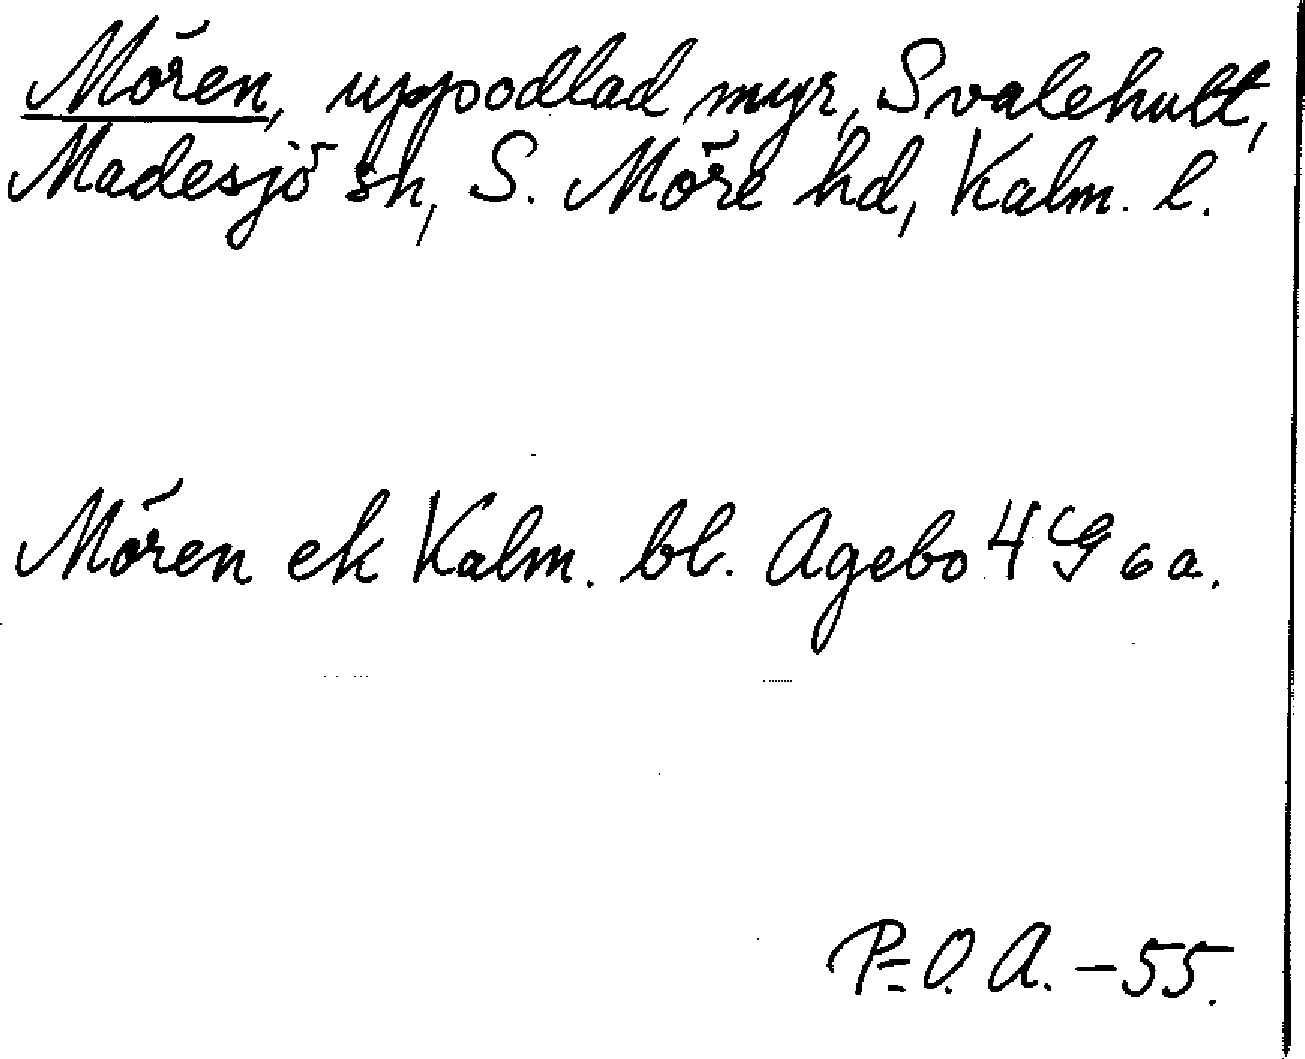 Mören, uppodlad myr, Svalehult,
Madesjö sn, S. Möre hd, Kalm. l.
Mören ek Kalm. bl. Agebo 4 G 6 a.
P.-O. A. - 55.